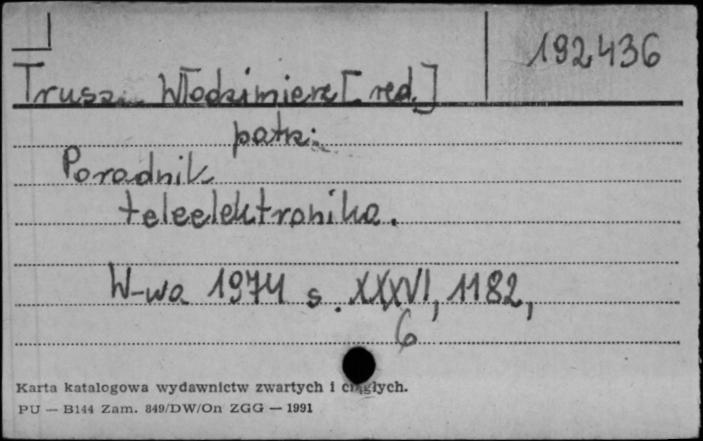 192436
Trusz Włodzimierz [red.]
patrz:
Poradnik
teleelektronika.
W-wa 1974 s. XXXVI, 1182,
6
Karta katalogowa wydawnictw zwartych i ciągłych.
PU — B144 Zam. 849/DW/On ZGG — 1991